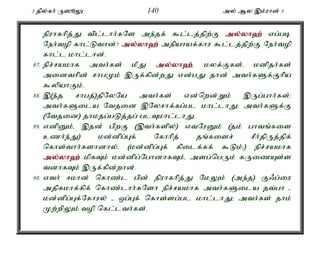 3 தில்கர் ருஸூலு 140 அல் ஆல இம்ரான் 3
நிராகரித்து விட்டார்களே அந்தக் கூட்டத்திற்கு அல்லாஹ் எப்படி நேர்வழி காட்டுவான்! அல்லாஹ் அநியாயக்கார கூட்டத்திற்கு நேர்வழி காட்ட மாட்டான்.
87. நிச்சயமாக அவர்கள் மீது அல்லாஹ், மலக்குகள், மனிதர்கள் அனைவரின் சாபமும் இருக்கின்றது என்பது தான் அவர்களுக்குரிய கூலியாகும்.
88. இ(ந்த சாபத்)திலேயே அவர்கள் என்றென்றும் இருப்பார்கள்; அவர்களுடைய வேதனை இலேசாக்கப்பட மாட்டாது; அவர்களுக்கு (வேதனை) தாமதப்படுத்தப் படவுமாட்டாது.
89. எனினும், இதன் பிறகு (இவர்களில்) எவரேனும் (தம் பாவங்களை உணர்ந்து) மன்னிப்புக் கோரித் தங்களைச் சீர்திருத்திக் கொள்வார்களானால், (மன்னிப்புக் கிடைக்கக் கூடும்:) நிச்சயமாக அல்லாஹ் மிகவும் மன்னிப்போனாகவும், அளப்பெரும் கருணையுள்ள வனாகவும் இருக்கின்றான்.
90. எவர் ஈமான் கொண்ட பின் நிராகரித்து மேலும் (அந்த) குஃப்ரை அதிகமாக்கிக் கொண்டார்களோ நிச்சயமாக அவர்களுடைய தவ்பா - மன்னிப்புக்கோரல் - ஒப்புக் கொள்ளப்பட மாட்டாது; அவர்கள் தாம் முற்றிலும் வழி கெட்டவர்கள்.